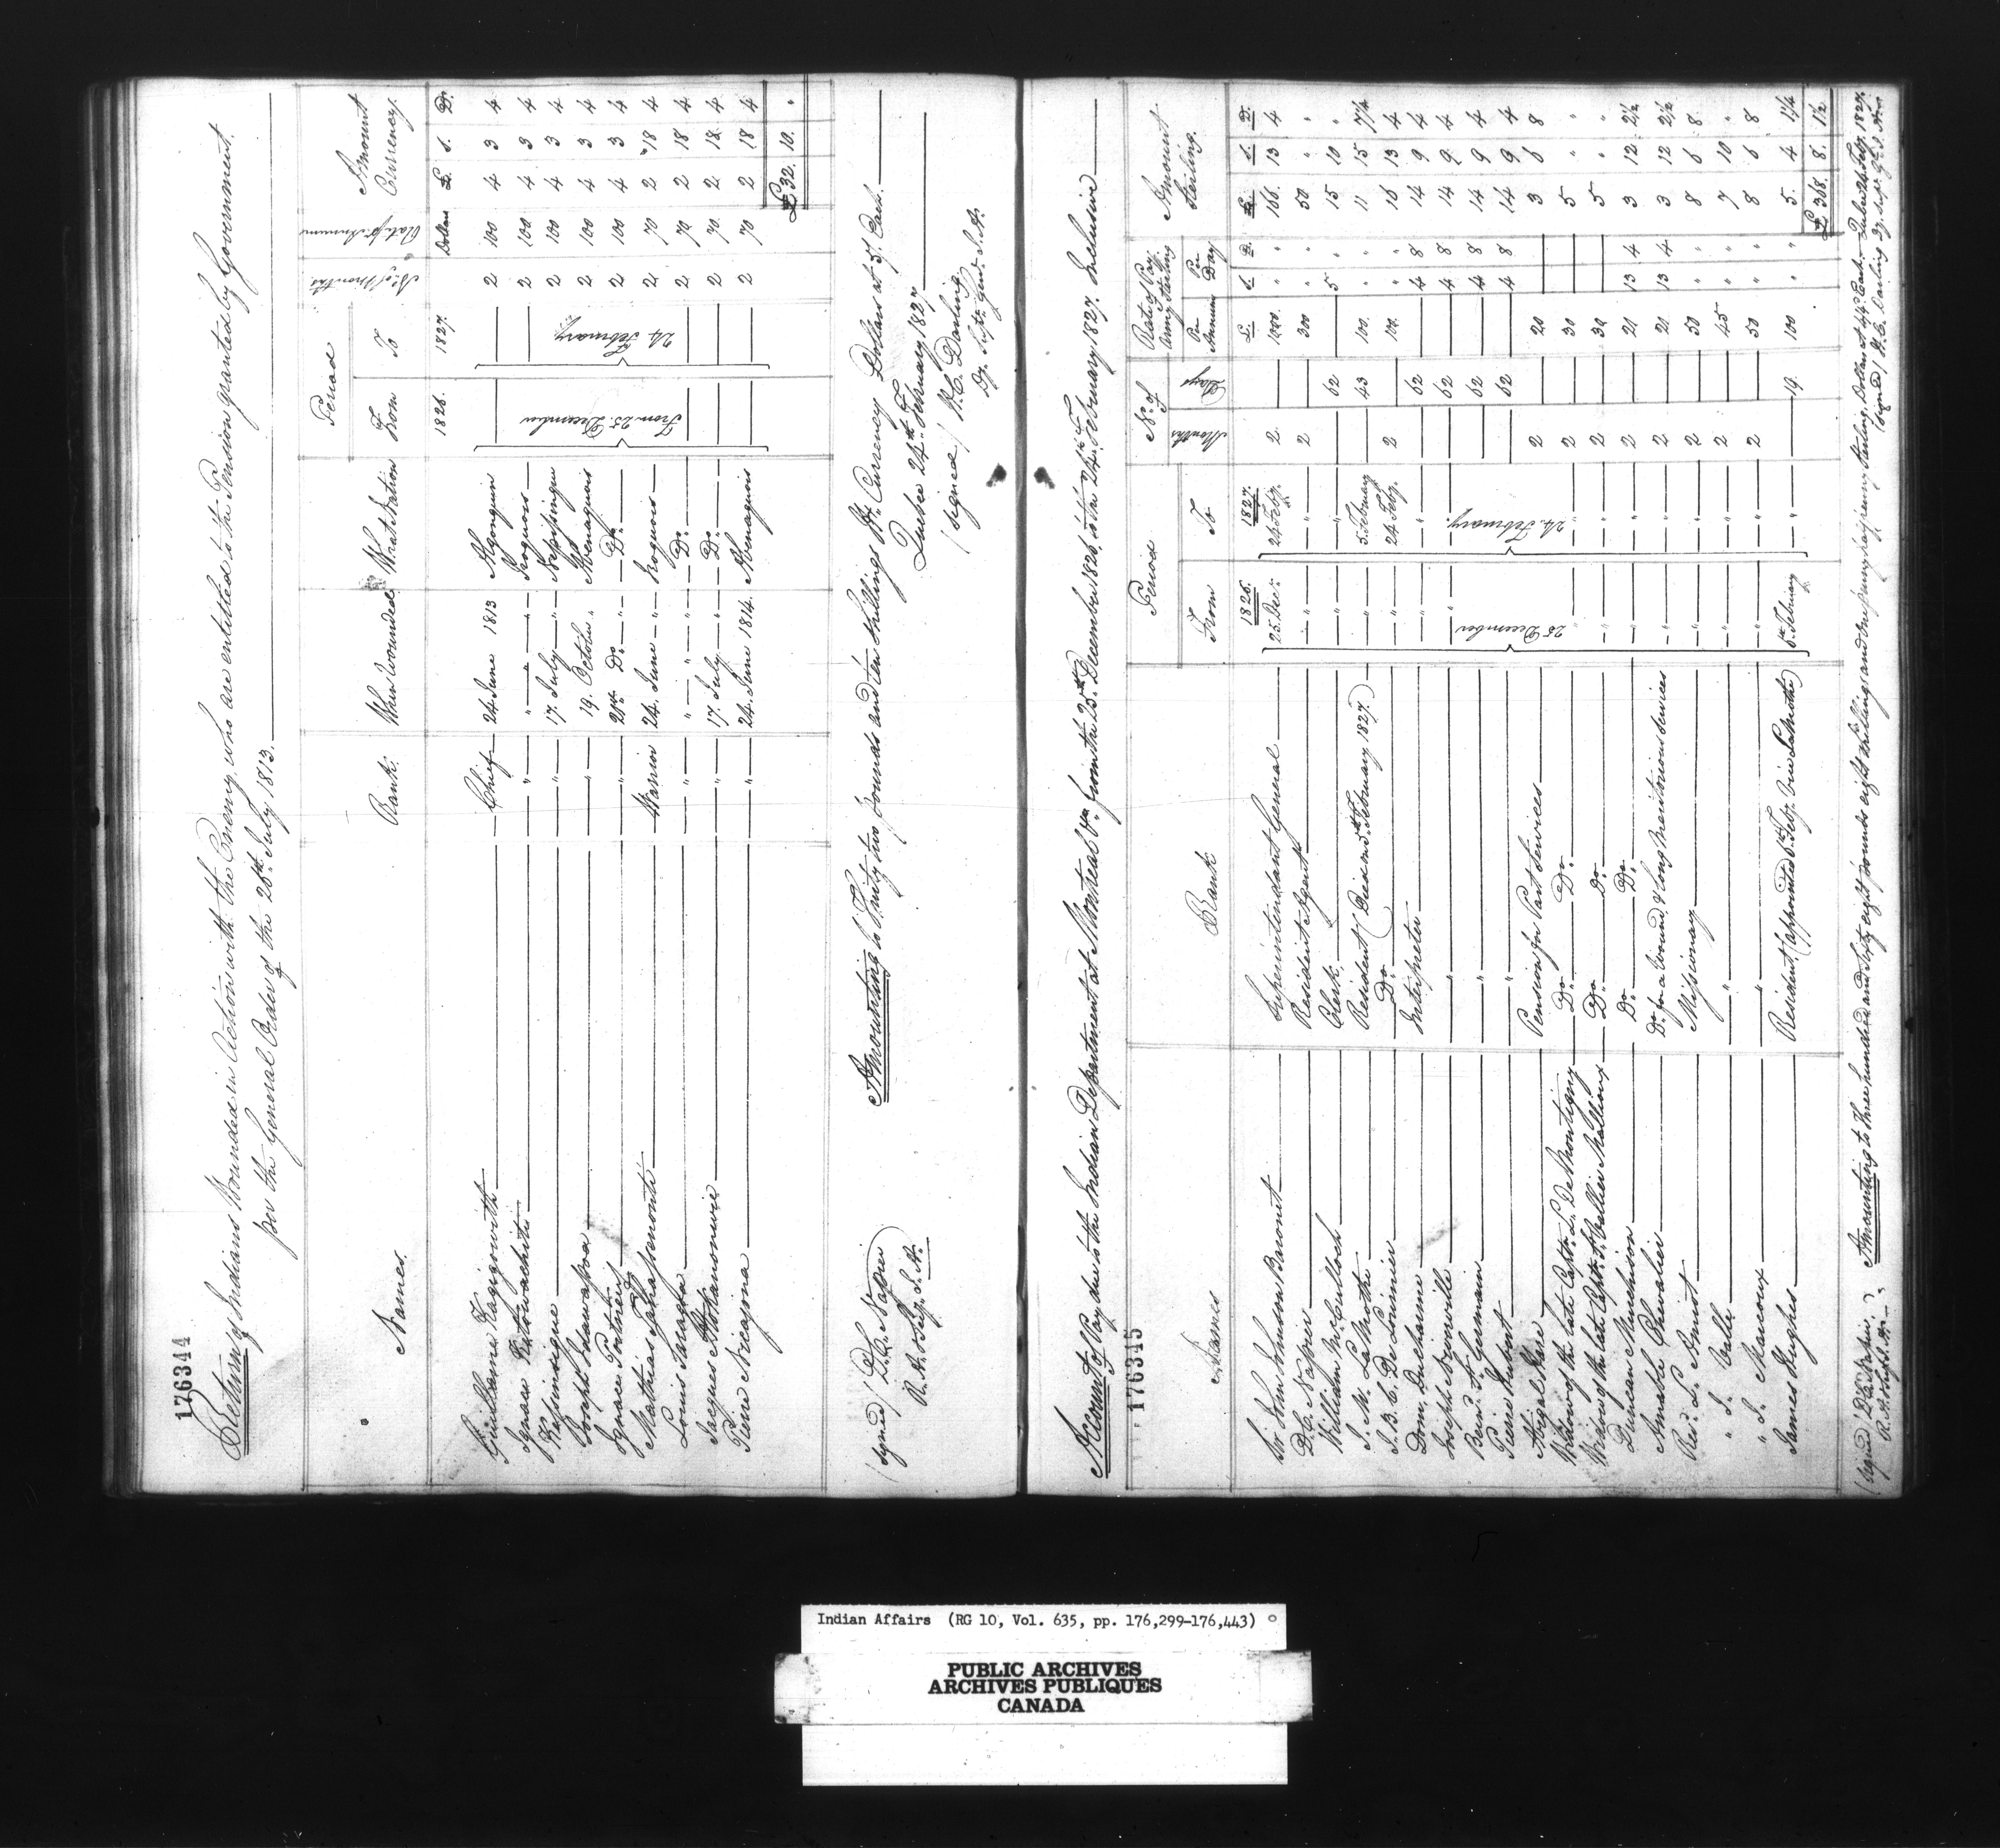 176344
Return of Indians Wounded in Action with the Enemy, who are entitled to the Pension granted by Government.
per the General Order of the 26th July 1813.
Names. Rank. When Wounded What Nation Period No. of Months Rate pr Annum Amount Currency
From To
1826. 1827. Dollars £. s. D.
Guillaume Chief 24. June 1813 Algonquin 2 100 4 3 4
Ignace " " " " Iroquois 2 100 4 3 4
" 17. July " Nepissingue 2 100 4 3 4
Joseph " 19. October " Abenaquois 2 100 4 3 4
Ignace Portneuf " 21st Do. " Do. 2 100 4 3 4
Mathias Warrior 24. June " Iroquois 2 70 2 18 4
Louis " " " " Do. 2 70 2 18 4
Jacques " 17. July Do. 2 70. 2 18. 4
Pierre " 24. June 1814. Abenaquois 2 70 2 18 4
From 25. December
24. February
£32. 10. "
Amounting to Thirty two pounds and ten shillings Hx. Currency Dollars at 5/. Each.
Quebec 24th February 1827
(signed) D. C. Napier (signed) H. C. Darling
R. A. & Secy. I. A. Dy. Supt. Genl. I. A.
Account of Pay due to the Indian Department at Montreal &ca. from the 25th December 1826, to the 24th February 1827. Inclusive
176345
Names Rank Period No. of Rate of Pay Army Sterling Amount Sterling.
From To Months Days Per Annum Per Day
1826. 1827. £ s. D. £ s. D.
Sir John Johnson Baronet Superintendant General 25. Decr. 24 Feby. 2. 1000. " " 166. 13 4
D. C. Napier Resident Agent " " 2 300 " " 50 " "
William McCulloch Clerk " " 62 5 " 15 10 "
J. M. La Mothe Resident (Deceased 5th February 1827) " 5. February 43 100. " " 11 15 7¼
J. B. C. De Lorimier Do. " 24 Feby. 2 100. " " 16 13 4
Dom. Ducharme Interpreter " " 62 4 8 14 9 4
Joseph Niverville " " 62 4 8 14 9 4
Benj. St. Germain " 62 4 8 14 9 4
Pierre Hubert " 62 4 8 14 9 4
Abigal Hare Pension for Past Services 2 20 3 6 8
Widow of the late Captn. L. De Montigny Do. Do. " " 2 30 5 " "
Widow of the late Captn. J. Vallier Mailloux Do. Do. " " 2 30 5 " "
Duncan Murchison Do. Do. " " 2 21 13 4 3 12 2½
Amable Chevalier Do. for a Wound & long Meritorious Services " " 2 21 13 4 3 12 2½
Revd. L. Amiot Missionary " " 2 50 " " 8 6 8.
" J. Valle " " " 2 45 " " 7 10 "
" J. Marcoux " " " 2 50 " " 8 6 8
James Hughes Resident (appointed 6th Feby. vice LaMothe) 6th February " 19. 100 " " 5. 4 1¼
25 December
24. February.
£368. 8. 1½
Amounting to Three hundred and sixty eight pounds eight shillings and one penny half penny Sterling, Dollars at 4/4 Each. Quebec 24. Feby. 1827.
(signed) D. C. Napier (signed) H. C. Darling Dy. Supt. Gl. I. A.
R. A. & Secy. I. A.
Indian Affairs (RG 10, Vol. 635, pp. 176,299-176,443)
PUBLIC ARCHIVES
ARCHIVES PUBLIQUES
CANADA